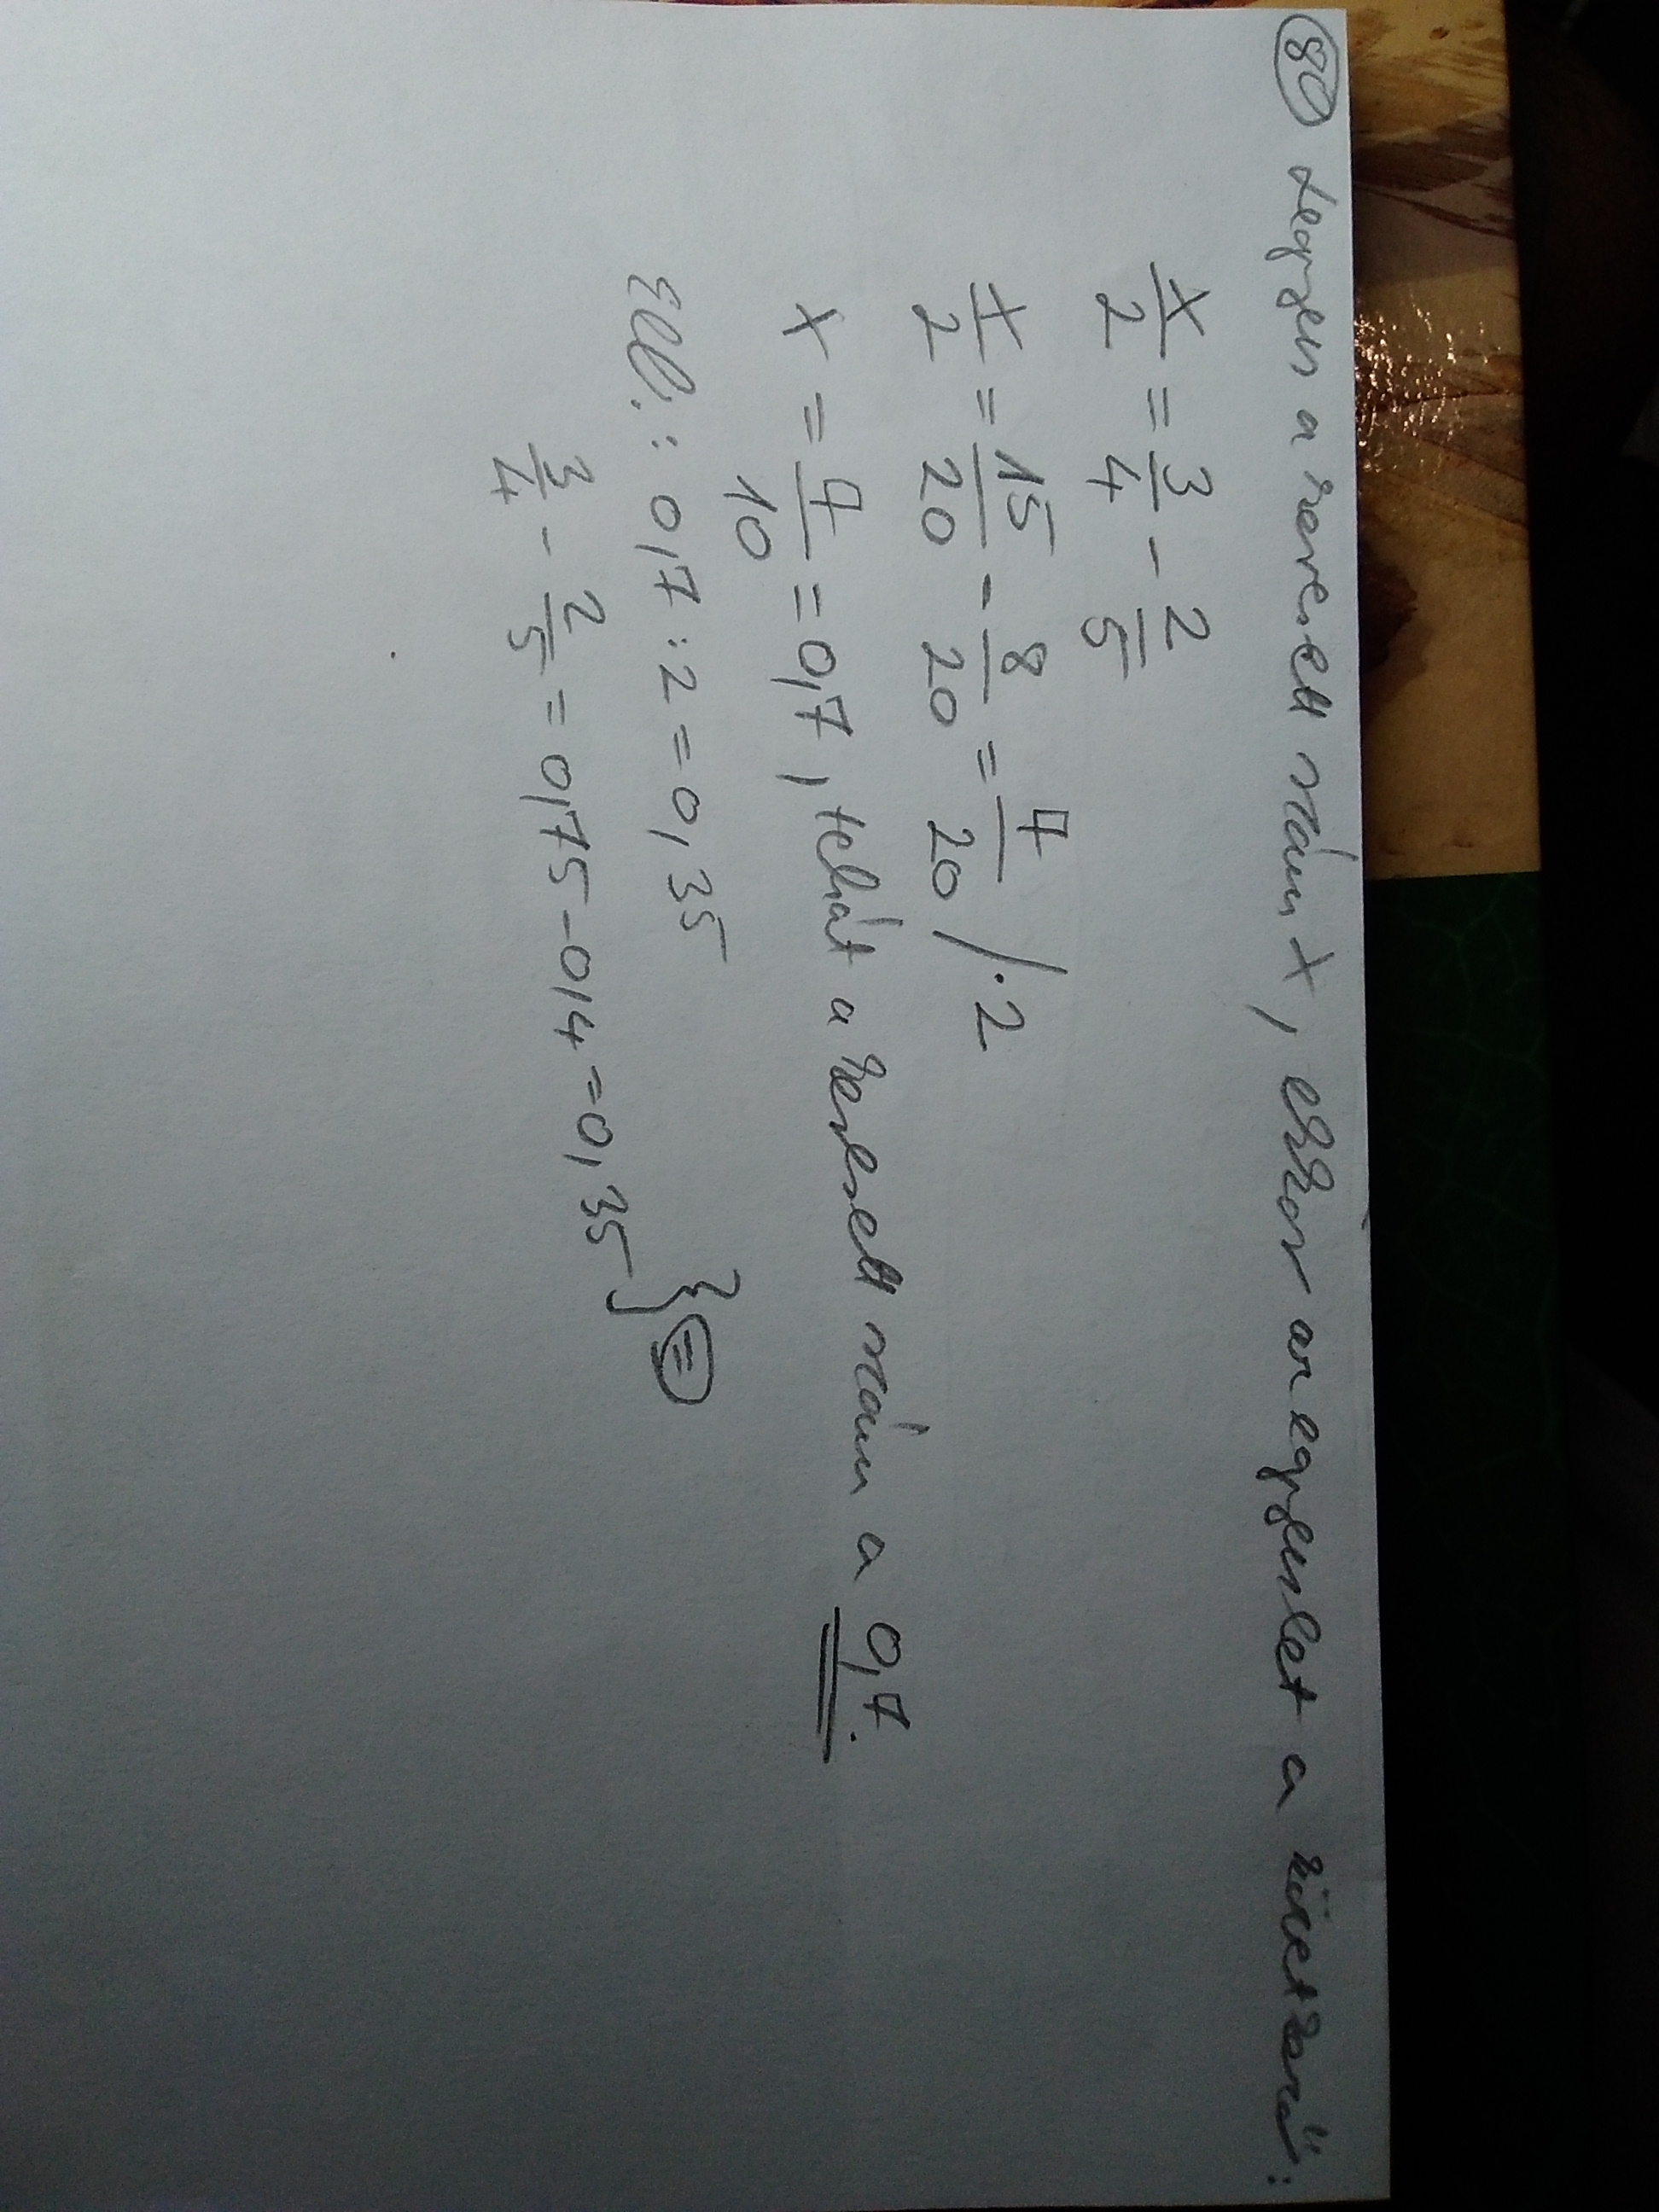 80 Legyen a keresett szám x, ekkor az egyenlet a következő:
x/2 = 3/4 - 2/5
x/2 = 15/20 - 8/20 = 7/20 /·2
x = 7/10 = 0,7, tehát a keresett szám a 0,7.
Ell.: 0,7 : 2 = 0,35
3/4 - 2/5 = 0,75 - 0,4 = 0,35 } =